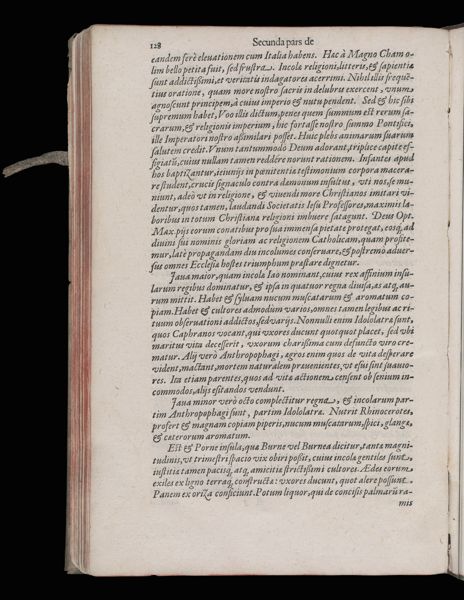 128 Secunda pars de
eandem ferè eleuationem cum Italia habens. Hac à Magno Cham o-
lim bello petita fuit, sed frustra. Incolæ religioni, litteris, & sapientiæ
sunt addictißimi, et veritatis indagatores acerrimi. Nihil illis frequē-
tius oratione, quam more nostro sacris in delubris exercent, vnum
agnoscunt principem, à cuius imperio & nutu pendent. Sed & hic sibi
supremum habet, Voo illis dictum, penes quem summum est rerum sa-
crarum, & religionis imperium, hic fortasse nostro summo Pontifici,
ille Imperatori nostro aßimilari posset. Huic plebs animarum suarum
salutem credit. Vnum tantummodo Deum adorant, triplice capite ef-
figiatū, cuius nullam tamen reddere norunt rationem. Infantes apud
hos baptizantur, ieiunijs in pœnitentiæ testimonium corpora macera-
re student, crucis signaculo contra dæmonum insultus, vti nos, se mu-
niunt, adeò vt in religione, & viuendi more Christianos imitari vi-
dentur, quos tamen, laudandi Societatis Iesu Professores, maximis la-
boribus in totum Christianæ religioni imbuere satagunt. Deus Opt.
Max. pijs eorum conatibus pro sua immensa pietate protegat, eosq́ ad
diuini sui nominis gloriam ac religionem Catholicam, quam profite-
mur, latè propagandam diu incolumes conseruare, & postremò aduer-
sus omnes Ecclesiæ hostes triumphum præstare dignetur.
Iaua maior, quam incolæ Iao nominant, cuius rex affinium insu-
larum regibus dominatur, & ipsa in quatuor regna diuisa, as atq́, au-
rum mittit. Habet & syluam nucum muscatarum & aromatum co-
piam. Habet & cultores admodùm varios, omnes tamen legibus ac ri-
tuum obseruationi addictos, sed varijs. Nonnulli enim Idololatræ sunt,
quos Caphranos vocant, qui vxores ducunt quotquot placet, sed vbi
maritus vita decesserit, vxorum charißima cum defuncto viro cre-
matur. Alij verò Anthropophagi, ægros enim quos de vita desperare
vident, mactant, mortem naturalem præuenientes, vt esus sint suauio-
res. Ita etiam parentes, quos ad vitæ actionem censent ob senium in-
commodos, alijs escandos vendunt.
Iaua minor verò octo complectitur regna, & incolarum par-
tim Anthropophagi sunt, partim Idololatræ. Nutrit Rhinocerotes,
profert & magnam copiam piperis, nucum muscatarum, spicæ, glangæ,
& cæterorum aromatum.
Est & Porne insula, quæ Burne vel Burnea dicitur, tantæ magni-
tudinis, vt trimestri spacio vix obiri poßit, cuius incolæ gentiles sunt,
iustitiæ tamen pacisq́, atq́, amicitiæ strictißimi cultores. Ædes eorum
exiles ex ligno terraq́, constructæ: vxores ducunt, quot alere possunt.
Panem ex oriza conficiunt. Potum liquor, qui de concisis palmarū ra-
mis